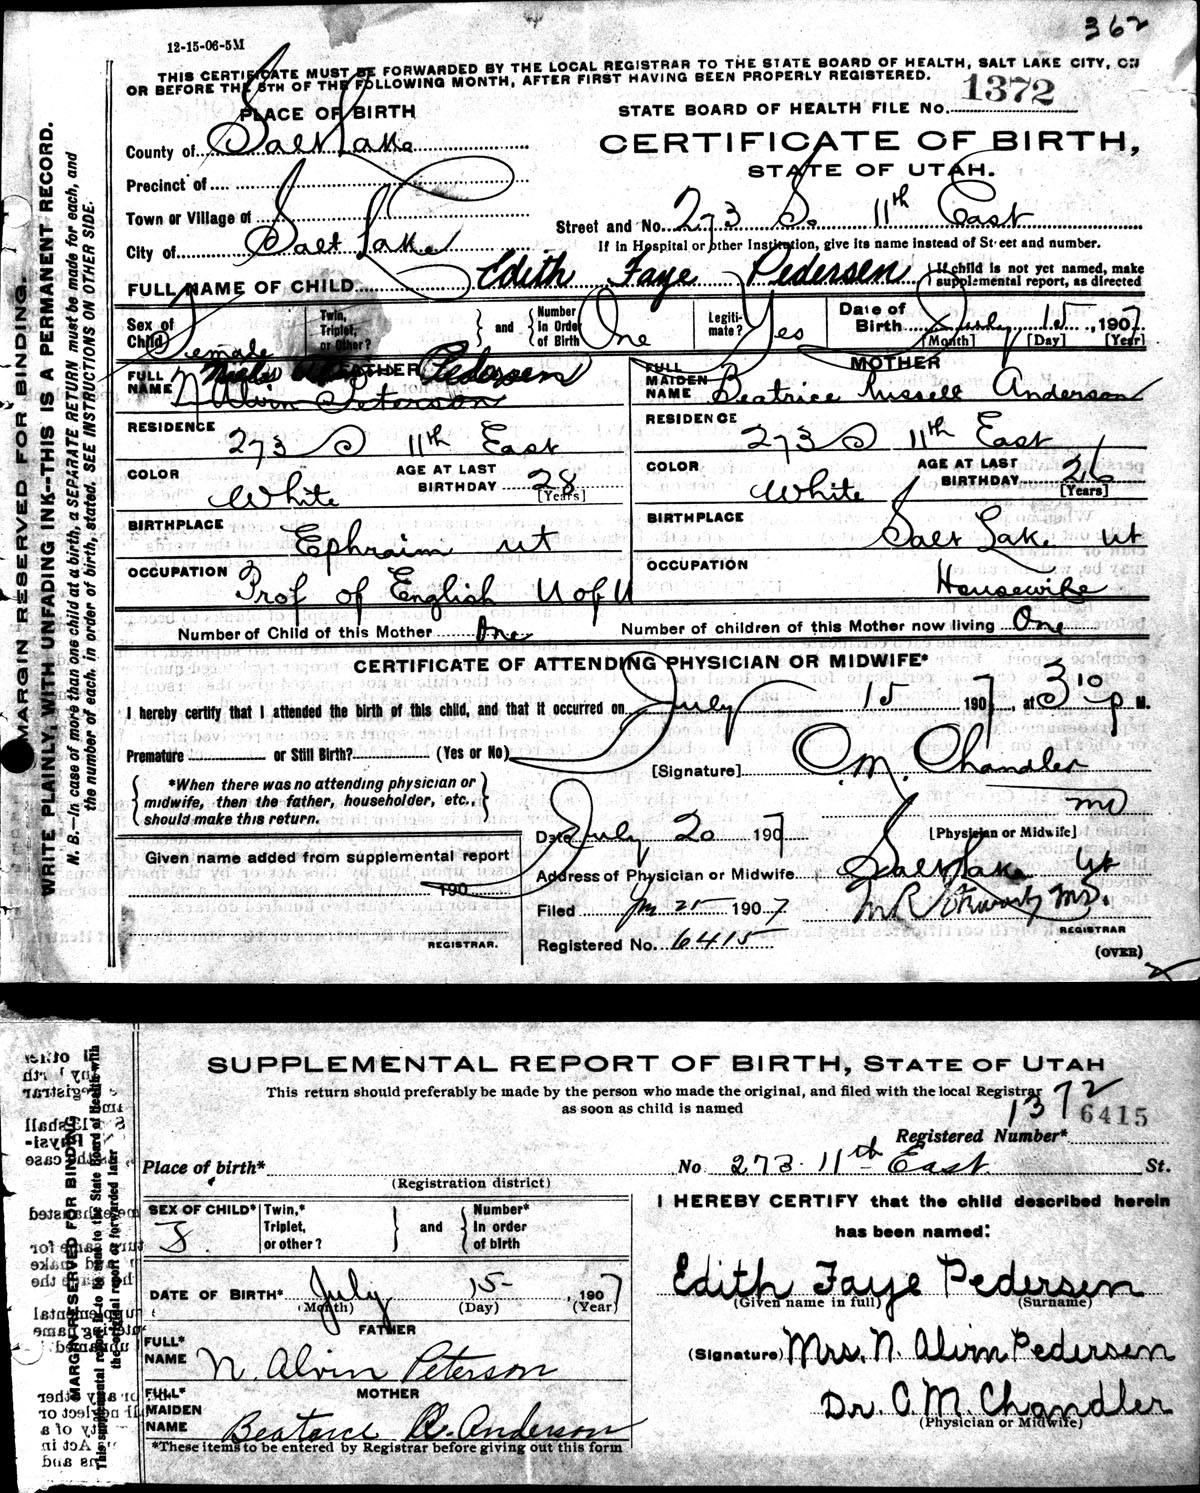 362
12-15-06-5M
THIS CERTIFICATE MUST BE FORWARDED BY THE LOCAL REGISTRAR TO THE STATE BOARD OF HEALTH, SALT LAKE CITY, ON
OR BEFORE THE 5TH OF THE FOLLOWING MONTH, AFTER FIRST HAVING BEEN PROPERLY REGISTERED.
STATE BOARD OF HEALTH FILE NO. 1372
PLACE OF BIRTH
CERTIFICATE OF BIRTH,
STATE OF UTAH.
County of Salt Lake
Precinct of
Town or Village of
City of Salt Lake
Street and No. 273 So. 11th East
If in Hospital or other Institution, give its name instead of Street and number.
FULL NAME OF CHILD Edith Faye Pedersen
If child is not yet named, make
supplemental report, as directed
Sex of Child Female
Twin, Triplet, or Other?
and
Number In Order of Birth One
Legitimate? Yes
Date of Birth July 15, 1907
[Month] [Day] [Year]
FATHER
FULL NAME Pedersen
N Alvin Peterson
RESIDENCE 273 S 11th East
COLOR White
AGE AT LAST BIRTHDAY 28
[Years]
BIRTHPLACE Ephraim Ut
OCCUPATION Prof of English U of U
MOTHER
FULL MAIDEN NAME Beatrice Russell Anderson
RESIDENCE 273 S 11th East
COLOR White
AGE AT LAST BIRTHDAY 26
[Years]
BIRTHPLACE Salt Lake Ut
OCCUPATION Housewife
Number of Child of this Mother One
Number of children of this Mother now living One
CERTIFICATE OF ATTENDING PHYSICIAN OR MIDWIFE*
I hereby certify that I attended the birth of this child, and that it occurred on July 15 1907, at 3 10 p M.
Premature or Still Birth? (Yes or No)
[Signature] C. M. Chandler
MD
[Physician or Midwife]
*When there was no attending physician or
midwife, then the father, householder, etc.,
should make this return.
Date July 20 1907
Given name added from supplemental report
190
REGISTRAR.
Address of Physician or Midwife Salt Lake Ut
Filed 1907
Registered No. 6415
REGISTRAR
(OVER)
MARGIN RESERVED FOR BINDING.
WRITE PLAINLY, WITH UNFADING INK--THIS IS A PERMANENT RECORD.
N. B.—In case of more than one child at a birth, a SEPARATE RETURN must be made for each, and
the number of each, in order of birth, stated. SEE INSTRUCTIONS ON OTHER SIDE.
SUPPLEMENTAL REPORT OF BIRTH, STATE OF UTAH
This return should preferably be made by the person who made the original, and filed with the local Registrar
as soon as child is named
1372
6415
Registered Number*
Place of birth*
(Registration district)
No 273 11th East St.
SEX OF CHILD* F.
Twin,* Triplet, or other?
and
Number* In order of birth
DATE OF BIRTH* July 15 1907
(Month) (Day) (Year)
FATHER
FULL* NAME N. Alvin Peterson
MOTHER
FULL* MAIDEN NAME Beatrice R. Anderson
*These items to be entered by Registrar before giving out this form
I HEREBY CERTIFY that the child described herein
has been named:
Edith Faye Pedersen
(Given name in full) (Surname)
(Signature) Mrs. N. Alvin Pedersen
Dr. C. M. Chandler
(Physician or Midwife)
MARGIN RESERVED FOR BINDING
This supplemental report is to be sent to the State Board of Health with
the original report or forwarded later